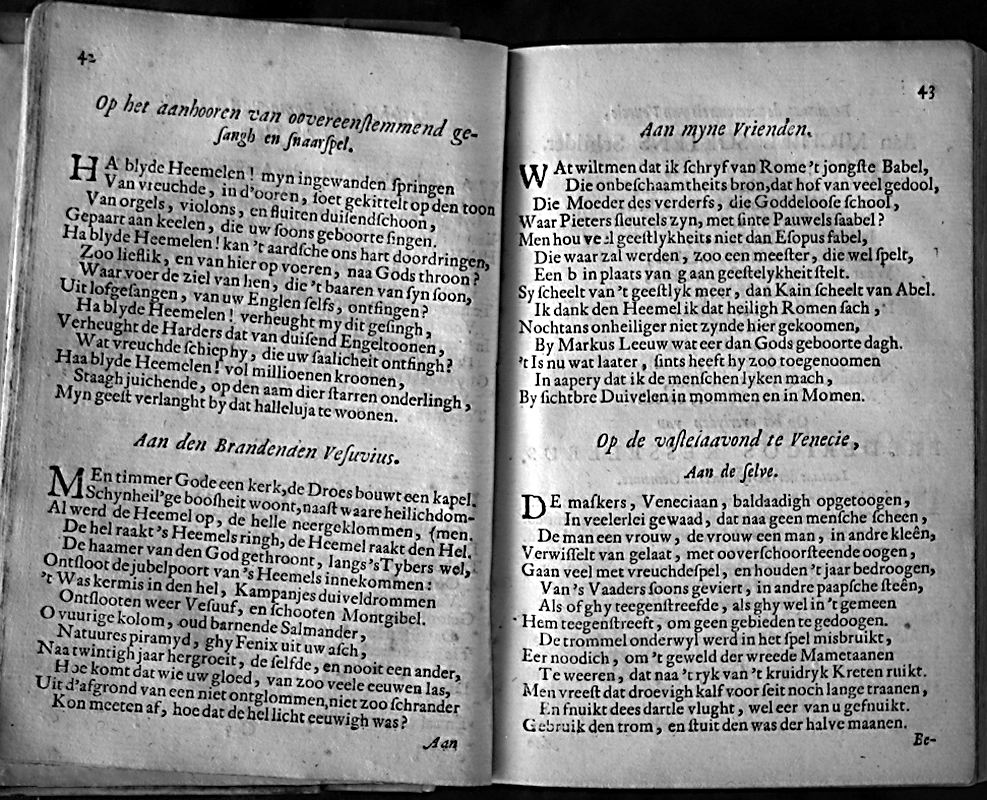 42
Op het aanhooren van oovereenstemmend ge-
sangh en snaarspel.
HA blyde Heemelen! myn ingewanden springen
Van vreuchde, in d'ooren, soet gekittelt op den toon
Van orgels, violons, en fluiten duisendschoon,
Gepaart aan keelen, die uw soons geboorte singen.
Ha blyde Heemelen! kan 't aardsche ons hart doordringen,
Zoo lieflik, en van hier op voeren, naa Gods throon?
Waar voer de ziel van hen, die 't baaren van syn soon,
Uit lofgesangen, van uw Englen selfs, ontfingen?
Ha blyde Heemelen! verheught my dit gesingh,
Verheught de Harders dat van duisend Engeltoonen,
Wat vreuchde schiep hy, die uw saalicheit ontfingh?
Haa blyde Heemelen! vol millioenen kroonen,
Staagh juichende, op den aam dier starren onderlingh,
Myn geest verlanght by dat halleluja te woonen.
Aan den Brandenden Vesuvius.
MEn timmer Gode een kerk, de Droes bouwt een kapel.
Schynheil'ge boosheit woont, naast waare heilichdom-
Al werd de Heemel op, de helle neergeklommen, {men.
De hel raakt 's Heemels ringh, de Heemel raakt den Hel.
De haamer van den God gethroont, langs 's Tybers wel,
Ontsloot de jubelpoort van 's Heemels innekommen:
't Was kermis in den hel, Kampanjes duiveldrommen
Ontslooten weer Vesuuf, en schooten Montgibel.
O vuurige kolom, oud barnende Salmander,
Natuures piramyd, ghy Fenix uit uw asch,
Naa twintigh jaar hergroeit, de selfde, en nooit een ander,
Hoe komt dat wie uw gloed, van zoo veele eeuwen las,
Uit d'afgrond van een niet ontglommen, niet zoo schrander
Kon meeten af, hoe dat de hel licht eeuwigh was?
Aan
43
Aan myne Vrienden.
WAt wiltmen dat ik schryf van Rome 't jongste Babel,
Die onbeschaamtheits bron, dat hof van veel gedool,
Die Moeder des verderfs, die Goddeloose school,
Waar Pieters sleutels zyn, met sinte Pauwels saabel?
Men hou veel geestlykheits niet dan Esopus fabel,
Die waar zal werden, zoo een meester, die wel spelt,
Een b in plaats van g aan geestelykheit stelt.
Sy scheelt van 't geestlyk meer, dan Kain scheelt van Abel.
Ik dank den Heemel ik dat heiligh Romen sach,
Nochtans onheiliger niet zynde hier gekoomen,
By Markus Leeuw wat eer dan Gods geboorte dagh.
't Is nu wat laater, sints heeft hy zoo toegenoomen
In aapery dat ik de menschen lyken mach,
By sichtbre Duivelen in mommen en in Momen.
Op de vastelaavond te Venecie,
Aan de selve.
DE maskers, Veneciaan, baldaadigh opgetoogen,
In veelerlei gewaad, dat naa geen mensche scheen,
De man een vrouw, de vrouw een man, in andre kleên,
Verwisselt van gelaat, met ooverschoorsteende oogen,
Gaan veel met vreuchdespel, en houden 't jaar bedroogen,
Van 's Vaaders soons geviert, in andre paapsche steên,
Als of ghy teegenstreefde, als ghy wel in 't gemeen
Hem teegenstreeft, om geen gebieden te gedoogen.
De trommel onderwyl werd in het spel misbruikt,
Eer noodich, om 't geweld der wreede Mametaanen
Te weeren, dat naa 't ryk van 't kruidryk Kreten ruikt.
Men vreest dat droevigh kalf voor seit noch lange traanen,
En snuikt dees dartle vlught, wel eer van u gesnuikt.
Gebruik den trom, en stuit den was der halve maanen.
Be-